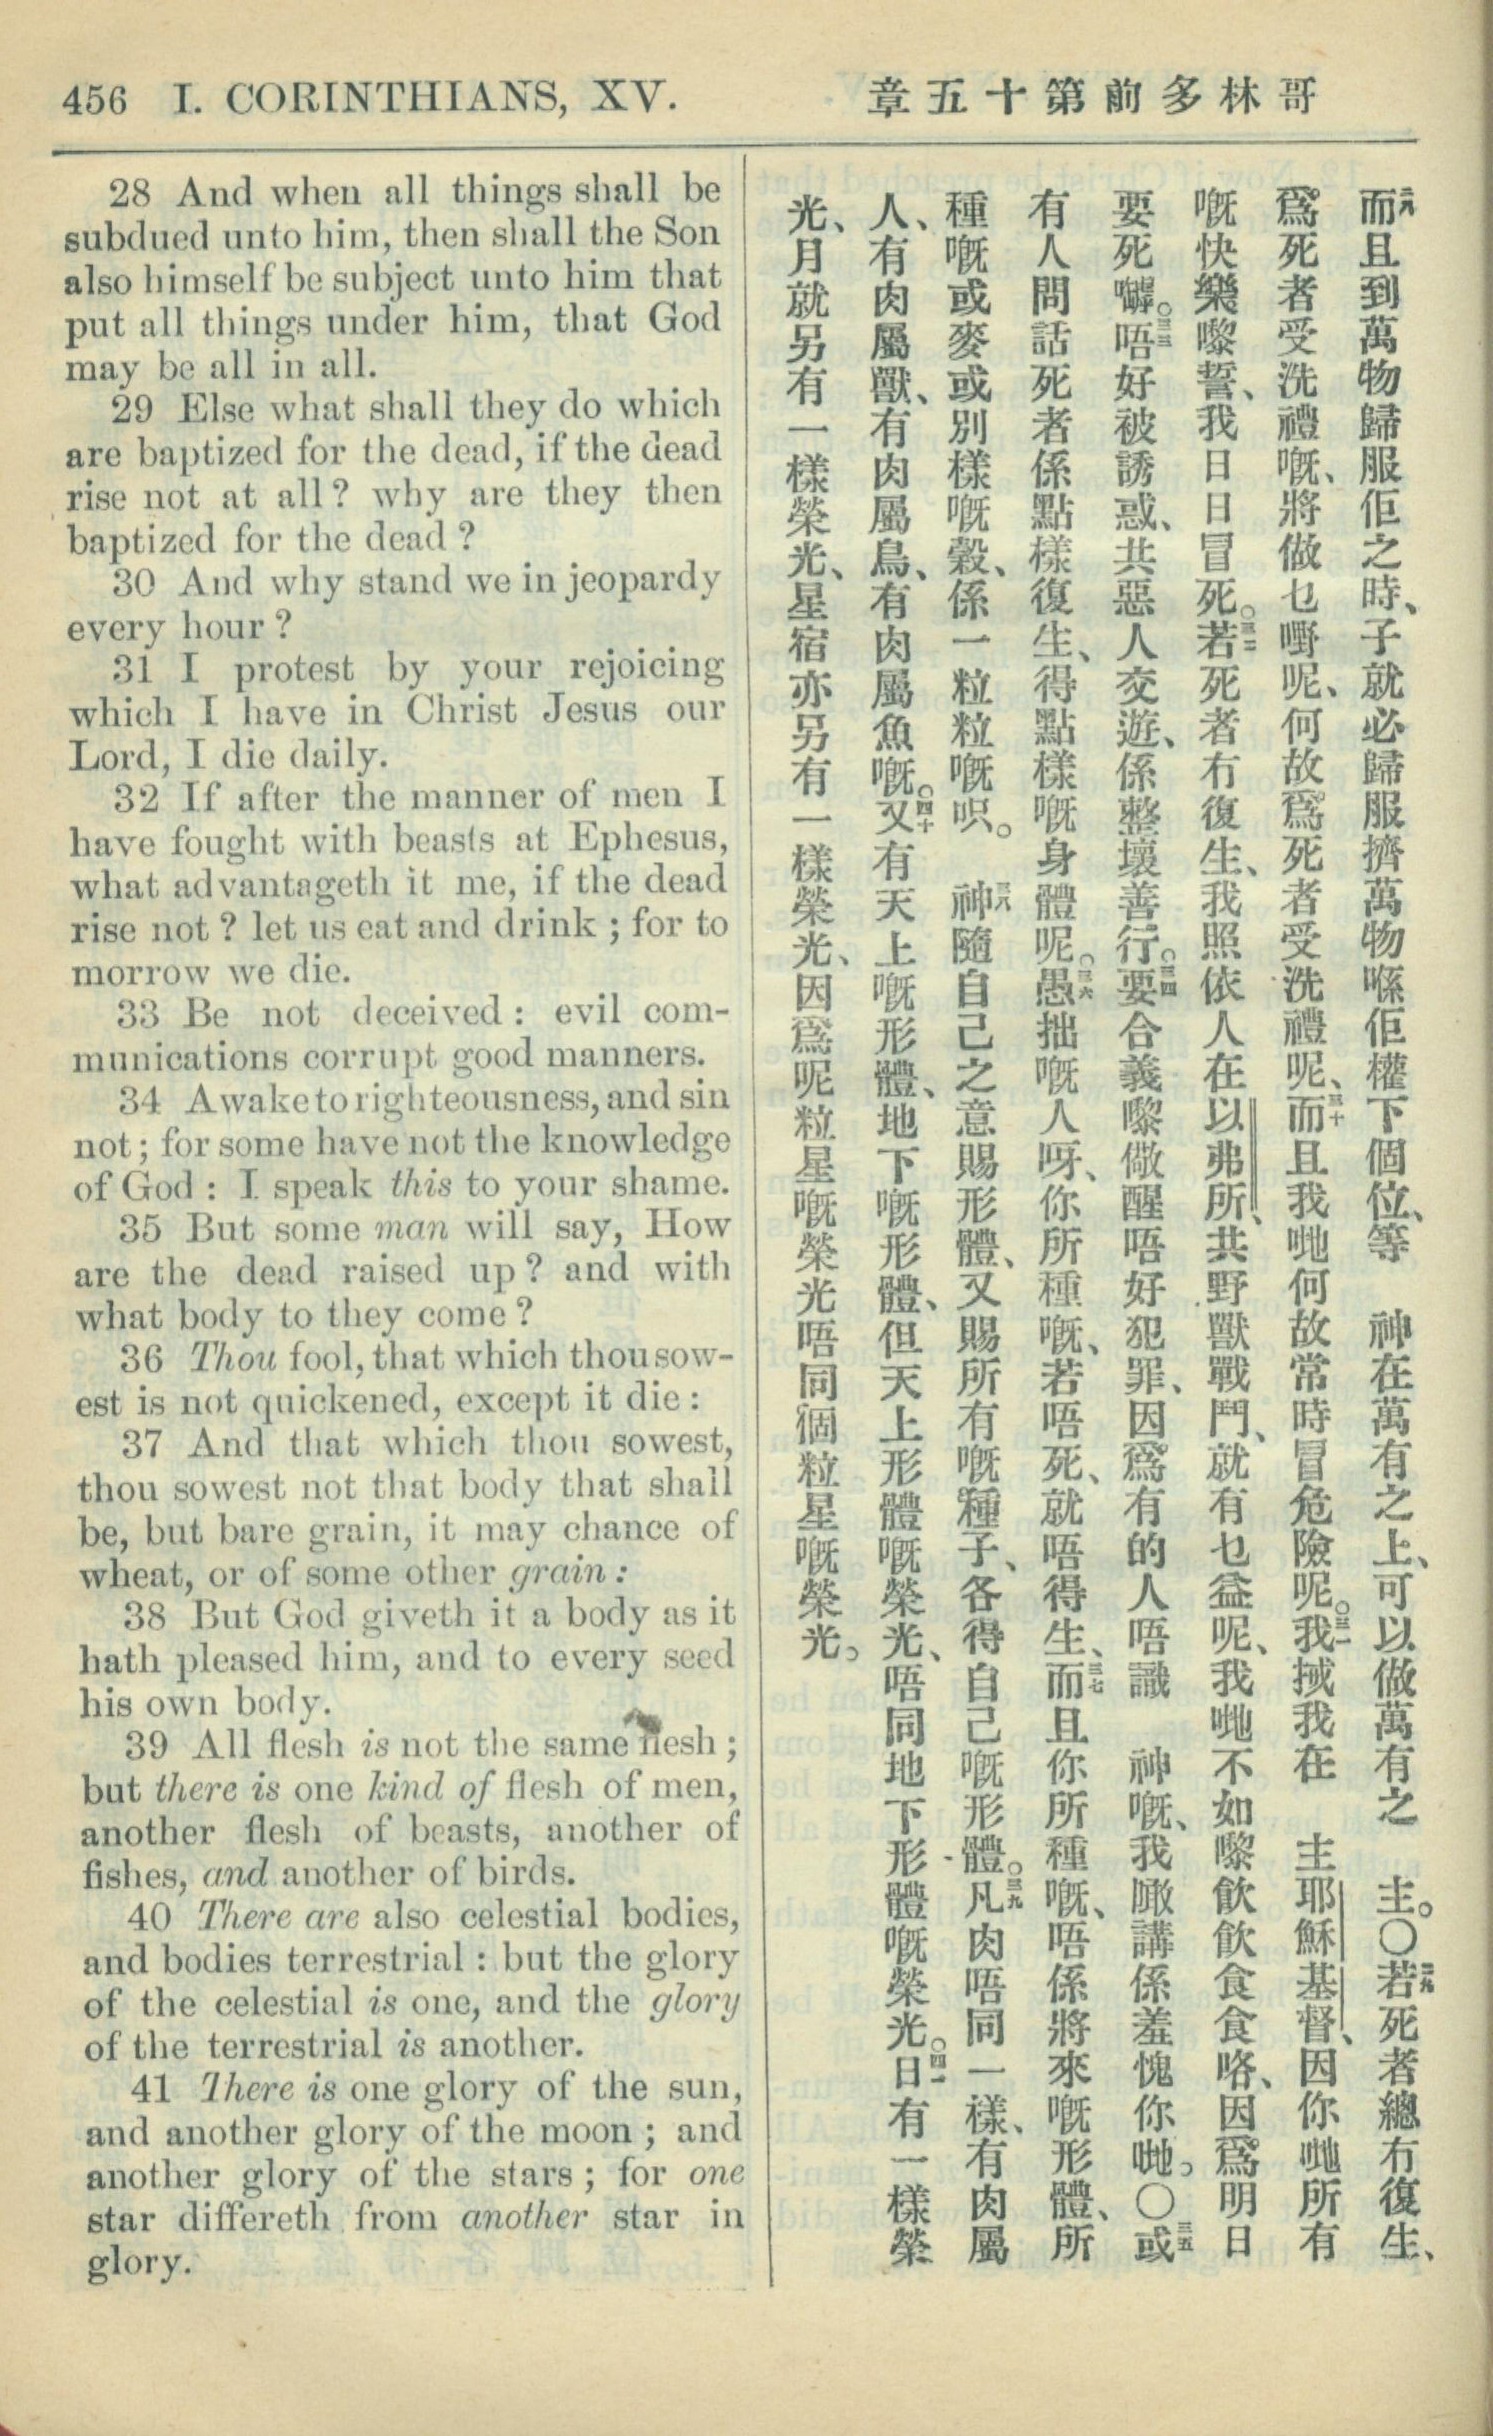 456 I. CORINTHIANS, XV.
哥林多前第十五章
28 And when all things shall be
subdued unto him, then shall the Son
also himself be subject unto him that
put all things under him, that God
may be all in all.
29 Else what shall they do which
are baptized for the dead, if the dead
rise not at all? why are they then
baptized for the dead?
30 And why stand we in jeopardy
every hour?
31 I protest by your rejoicing
which I have in Christ Jesus our
Lord, I die daily.
32 If after the manner of men I
have fought with beasts at Ephesus,
what advantageth it me, if the dead
rise not? let us eat and drink; for to
morrow we die.
33 Be not deceived: evil com-
munications corrupt good manners.
34 Awake to righteousness, and sin
not; for some have not the knowledge
of God: I speak this to your shame.
35 But some man will say, How
are the dead raised up? and with
what body to they come?
36 Thou fool, that which thou sow-
est is not quickened, except it die:
37 And that which thou sowest,
thou sowest not that body that shall
be, but bare grain, it may chance of
wheat, or of some other grain:
38 But God giveth it a body as it
hath pleased him, and to every seed
his own body.
39 All flesh is not the same flesh;
but there is one kind of flesh of men,
another flesh of beasts, another of
fishes, and another of birds.
40 There are also celestial bodies,
and bodies terrestrial: but the glory
of the celestial is one, and the glory
of the terrestrial is another.
41 There is one glory of the sun,
and another glory of the moon; and
another glory of the stars; for one
star differeth from another star in
glory.
二八而且到萬物歸服佢之時、子就必歸服擠萬物喺佢權下個位、等 神在萬有之上、可以做萬有之 主。〇二九若死者總冇復生、
爲死者受洗禮嘅、將做乜嘢呢、何故爲死者受洗禮呢、三十而且我哋何故常時冒危險呢。三一我㧕我在 主耶穌基督、因你哋所有
嘅快樂嚟誓、我日日冒死。三二若死者冇復生、我照依人在以弗所、共野獸戰鬥、就有乜益呢、我哋不如嚟飲飲食食咯、因爲明日
要死囉。三三唔好被誘惑、共惡人交遊、係整壞善行。三四要合義嚟儆醒唔好犯罪、因爲有的人唔識 神嘅、我噉講係羞愧你哋。〇三五或
有人問話死者係點樣復生、得點樣嘅身體呢。三六愚拙嘅人呀、你所種嘅、若唔死、就唔得生、三七而且你所種嘅、唔係將來嘅形體、所
種嘅或麥或別樣嘅穀、係一粒粒嘅呮。三八神隨自己之意賜形體、又賜所有嘅種子、各得自己嘅形體。三九凡肉唔同一樣、有肉屬
人、有肉屬獸、有肉屬鳥、有肉屬魚嘅。四十又有天上嘅形體、地下嘅形體、但天上形體嘅榮光、唔同地下形體嘅榮光。四一日有一樣榮
光、月就另有一樣榮光、星宿亦另有一樣榮光、因爲呢粒星嘅榮光唔同個粒星嘅榮光。